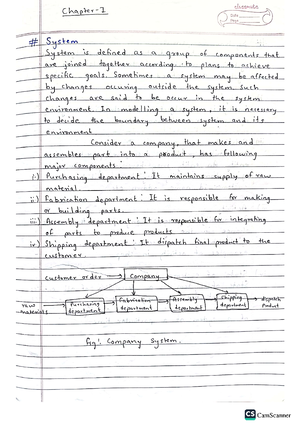 Chapter-1
classmate
Date
Page
# System
System is defined as a group of components that
are joined together according to plans to achieve
specific goals. Sometimes a system may be affected
by changes occuring outside the system. Such
changes are said to be occur in the system
environment. In modelling a system, it is necessary
to decide the boundary between system and its
environment
Consider a company, that makes and
assembles part into a product has following
major components:
i) Purchasing department: It maintains supply of raw
material.
ii) Fabrication department: It is responsible for making
or building parts.
iii) Assembly department: It is responsible for integrating
of parts to produce products
iv) Shipping department: It dispatch final product to the
customer.
customer order → Company
raw materials → Purchasing department → Fabrication department → Assembly department → Shipping department → dispatch Product
fig: Company System.
CS CamScanner